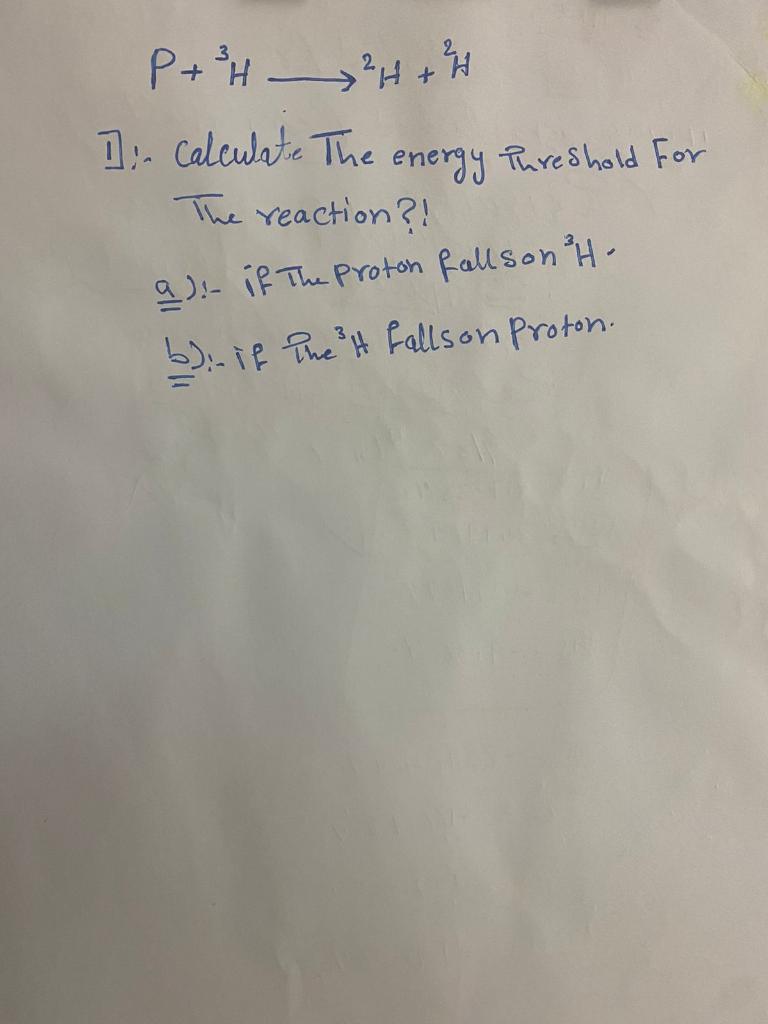 P + ³H ⟶ ²H + ²H
1]:- Calculate The energy Threshold For
The reaction?!
a):- if The Proton falls on ³H.
b):- if The ³H falls on Proton.